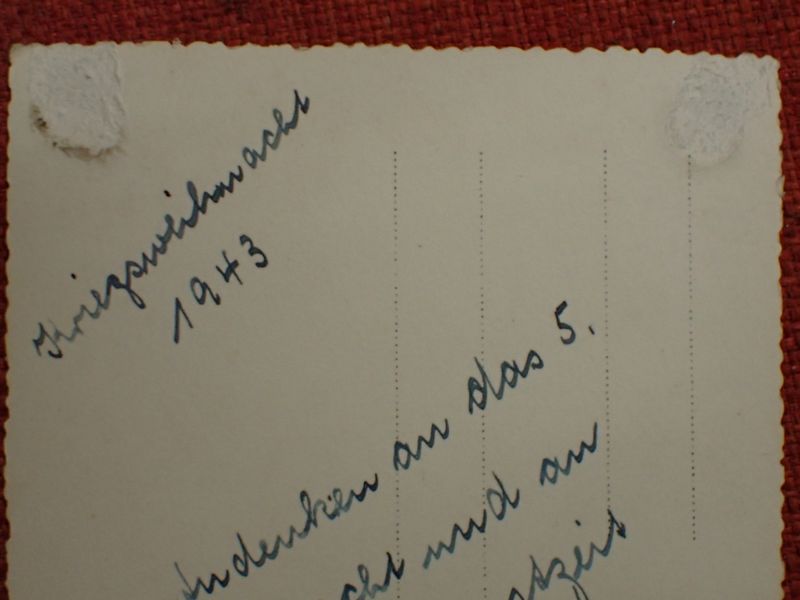 Kriegsweihnacht
1943
Andenken an das 5.
und an